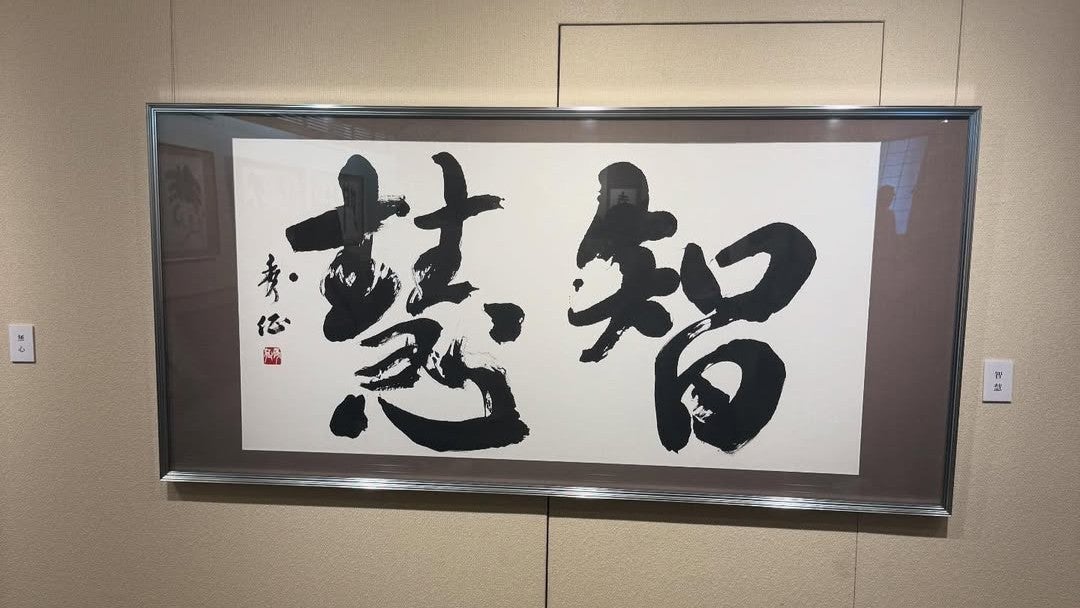 智慧
秀征
智慧
無心